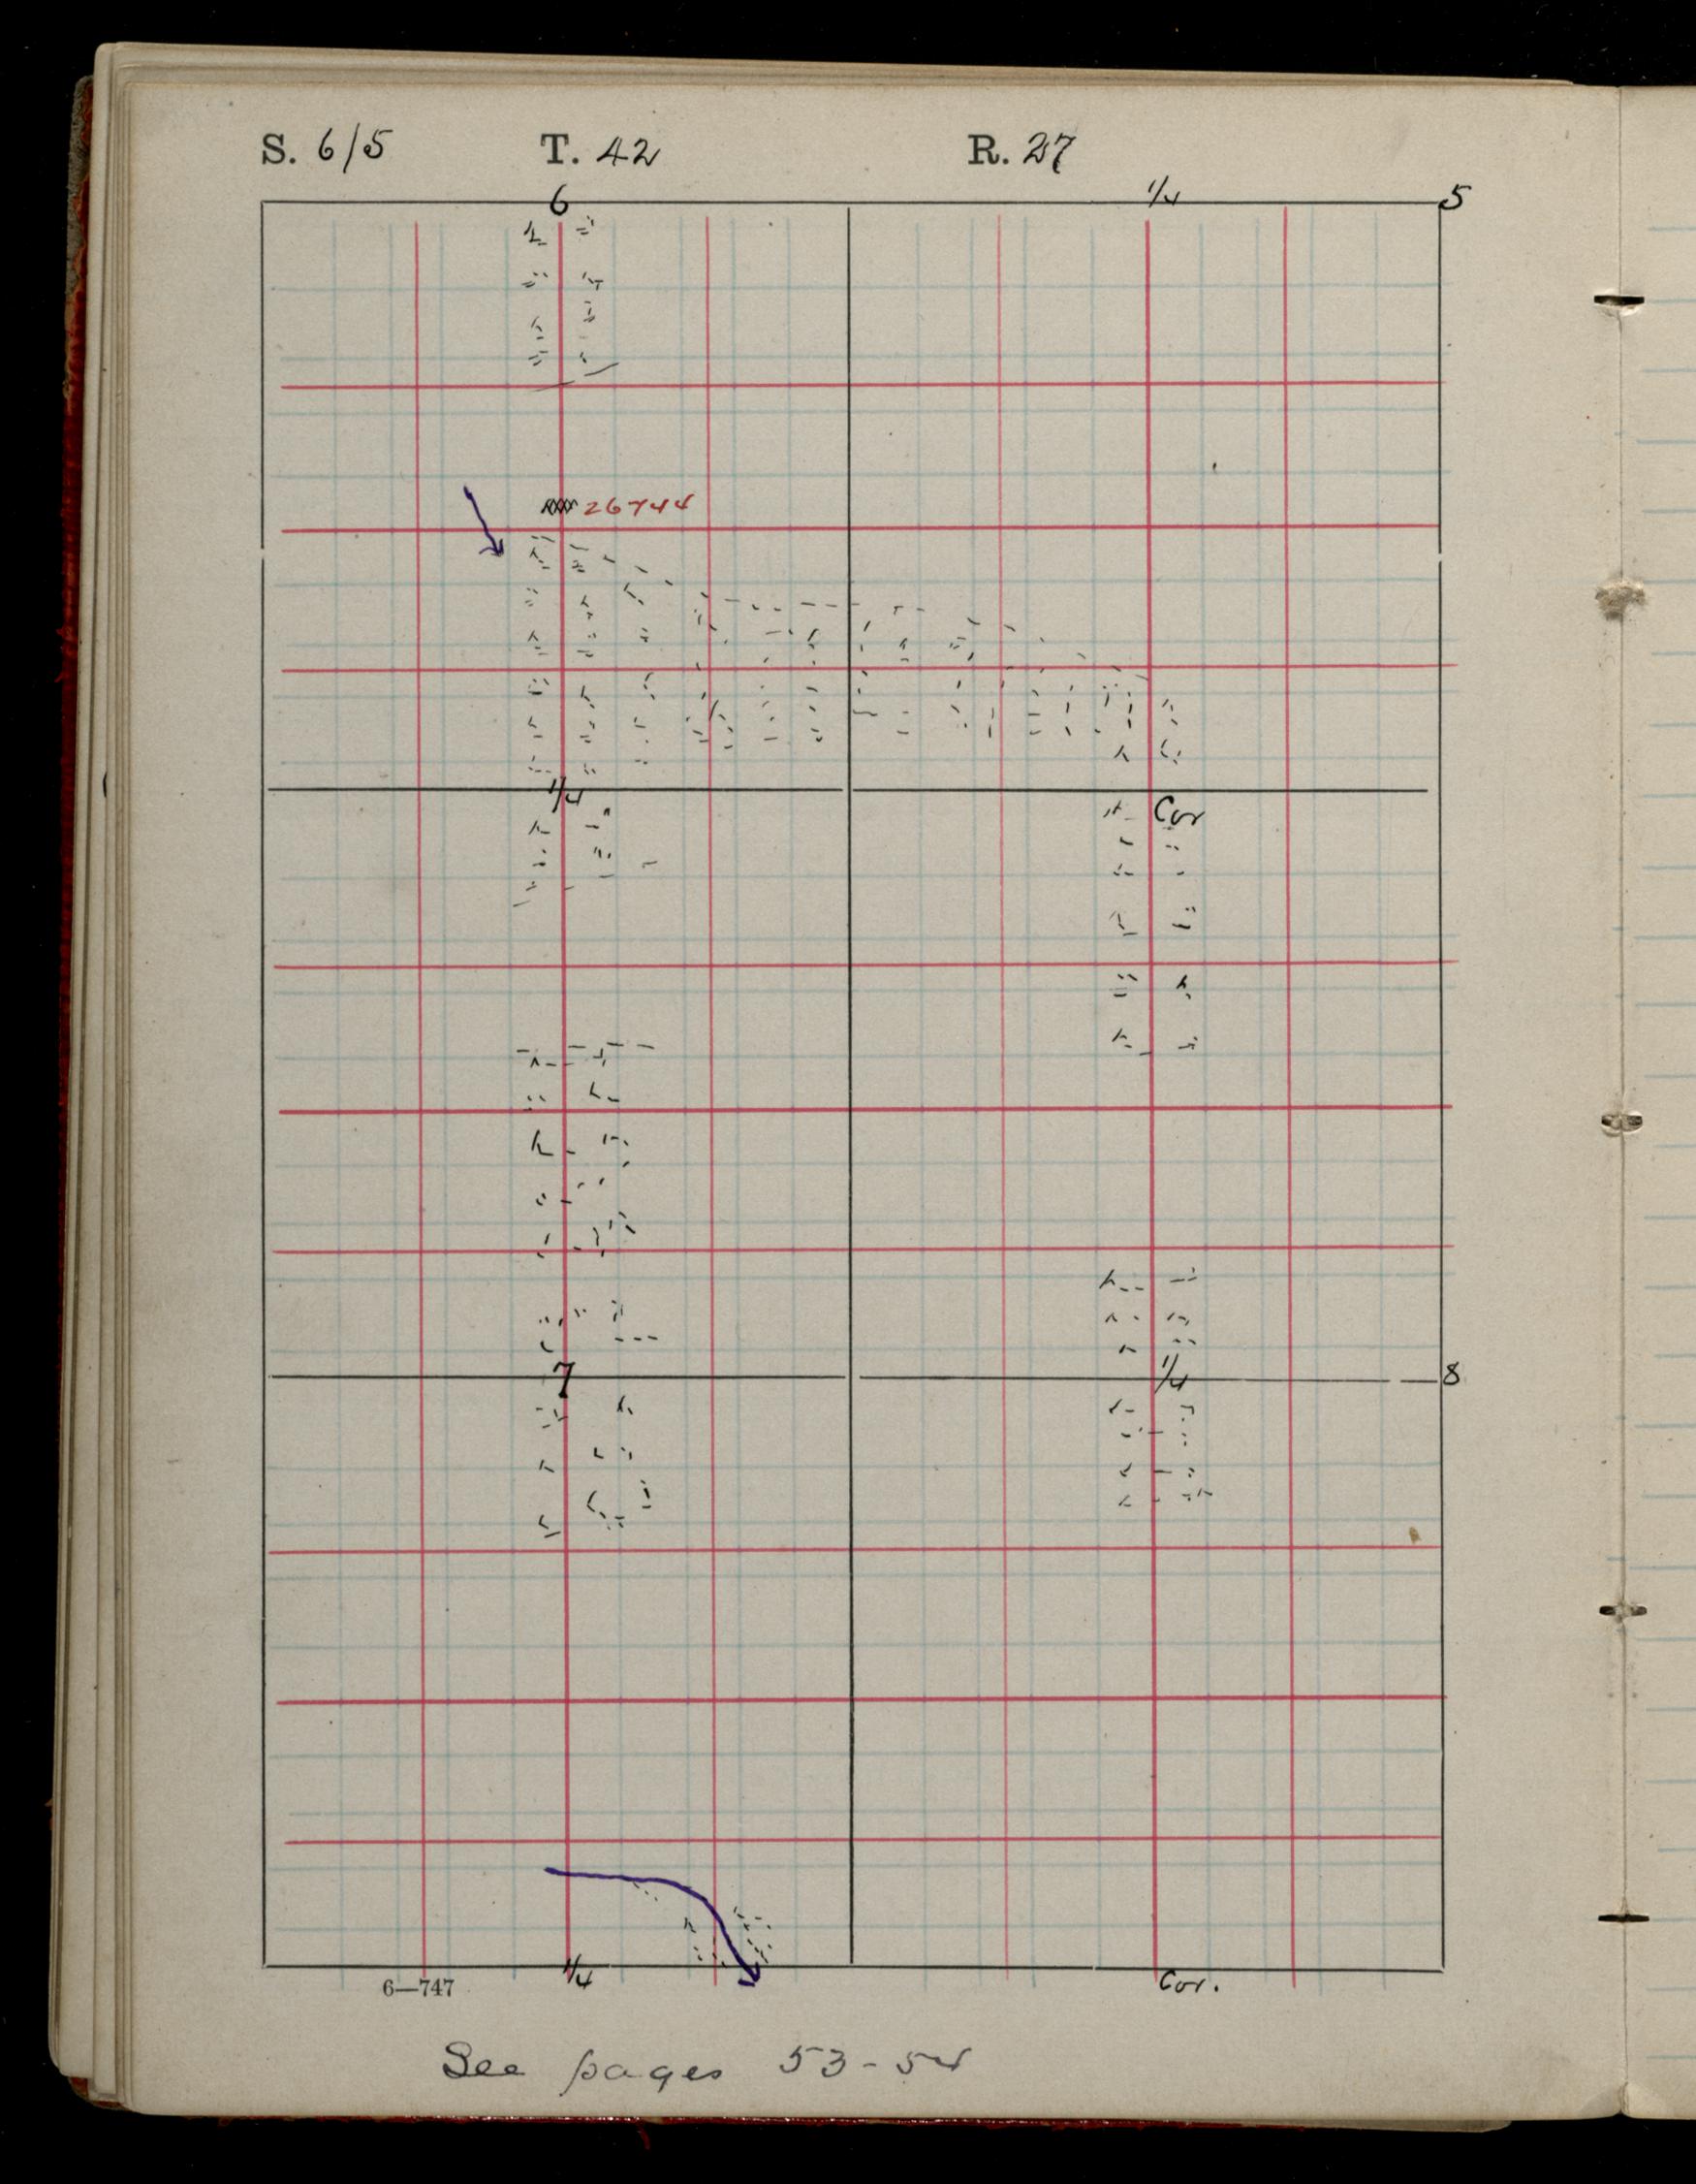 S. 6/5 T. 42 R. 27
6 1/4 5
26744
1/4 Cor
7 1/4 8
1/4 Cor.
6—747
See pages 53-54